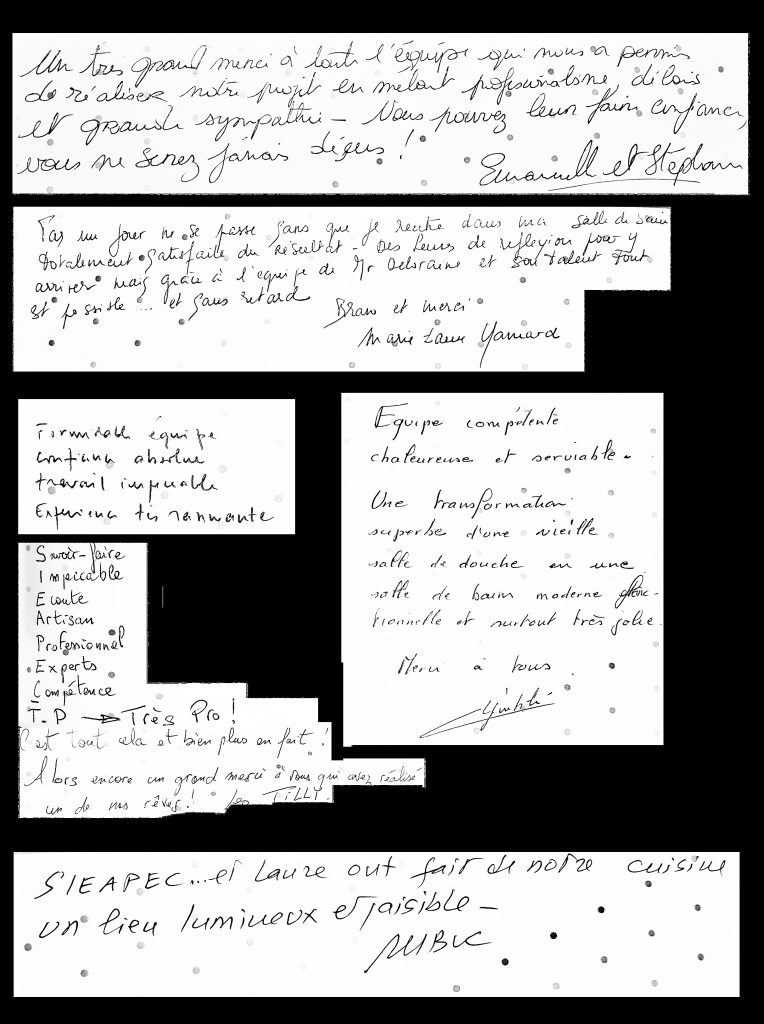 Un très grand merci à toute l'équipe qui nous a permis
de réaliser notre projet en mélant professionalisme, délais
et grande sympathie - Vous pouvez leur faire confiance,
vous ne serez jamais déçus !
Emanuelle et Stephane
Pas un jour ne se passe sans que je rentre dans ma salle de bain
totalement satisfaite du résultat - Des heures de réflexion pour y
arriver mais grâce à l'équipe de Mr Deloraine et son talent tout
est possible ... et sans retard
Bravo et merci
Marie Laure
Formidable équipe
confiance absolue
travail impeccable
Experience très rannante
Savoir-faire
Impeccable
Ecoute
Artisan
Professionnel
Experts
Compétence
T.P → Très Pro !
C'est tout cela et bien plus en fait !
Alors encore un grand merci à vous qui avez réalisé
un de nos rêves ! Les TILLY.
Equipe compétente
chaleureuse et serviable.
Une transformation
superbe d'une vieille
salle de douche en une
salle de bain moderne fonc-
tionnelle et surtout très jolie.
Merci à tous
SIEAPEC...et Laure ont fait de notre cuisine
un lieu lumineux et paisible -